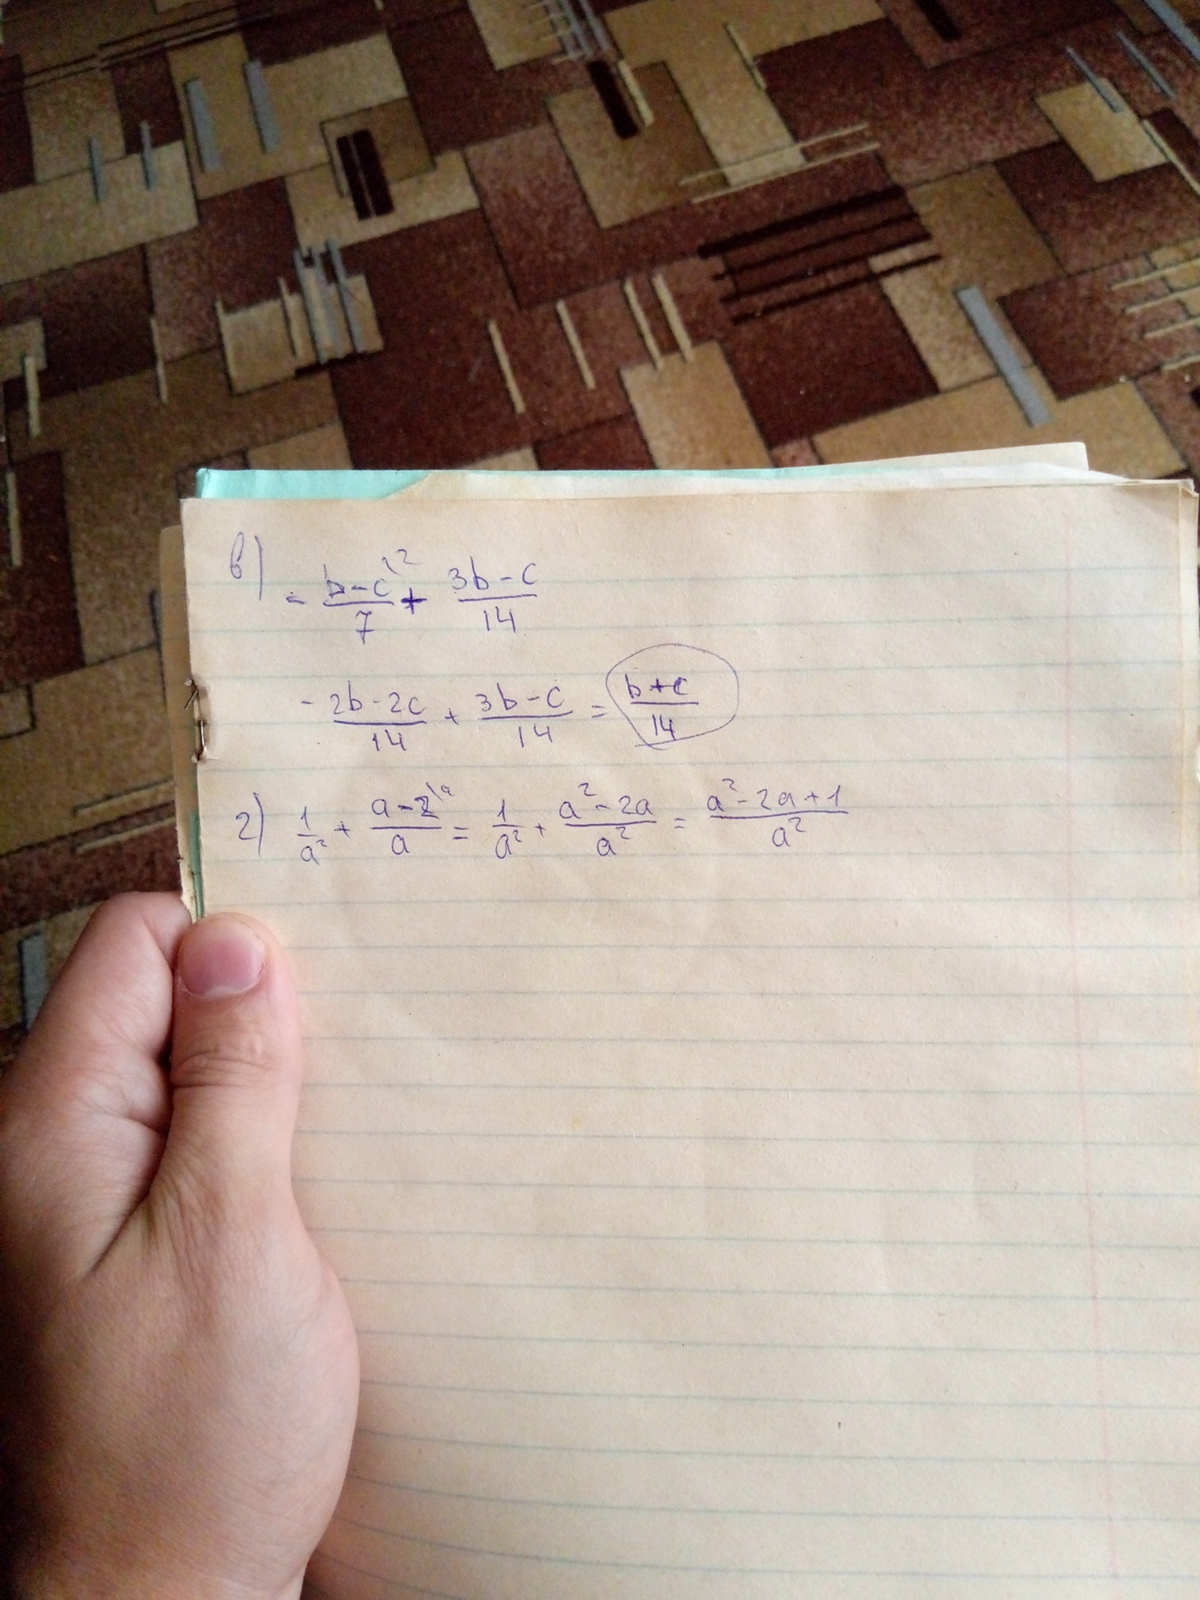 в) - b-c\2/7 + 3b-c/14
- 2b-2c/14 + 3b-c/14 = b+c/14
г) 1/a² + a-2\a/a = 1/a² + a²-2a/a² = a²-2a+1/a²